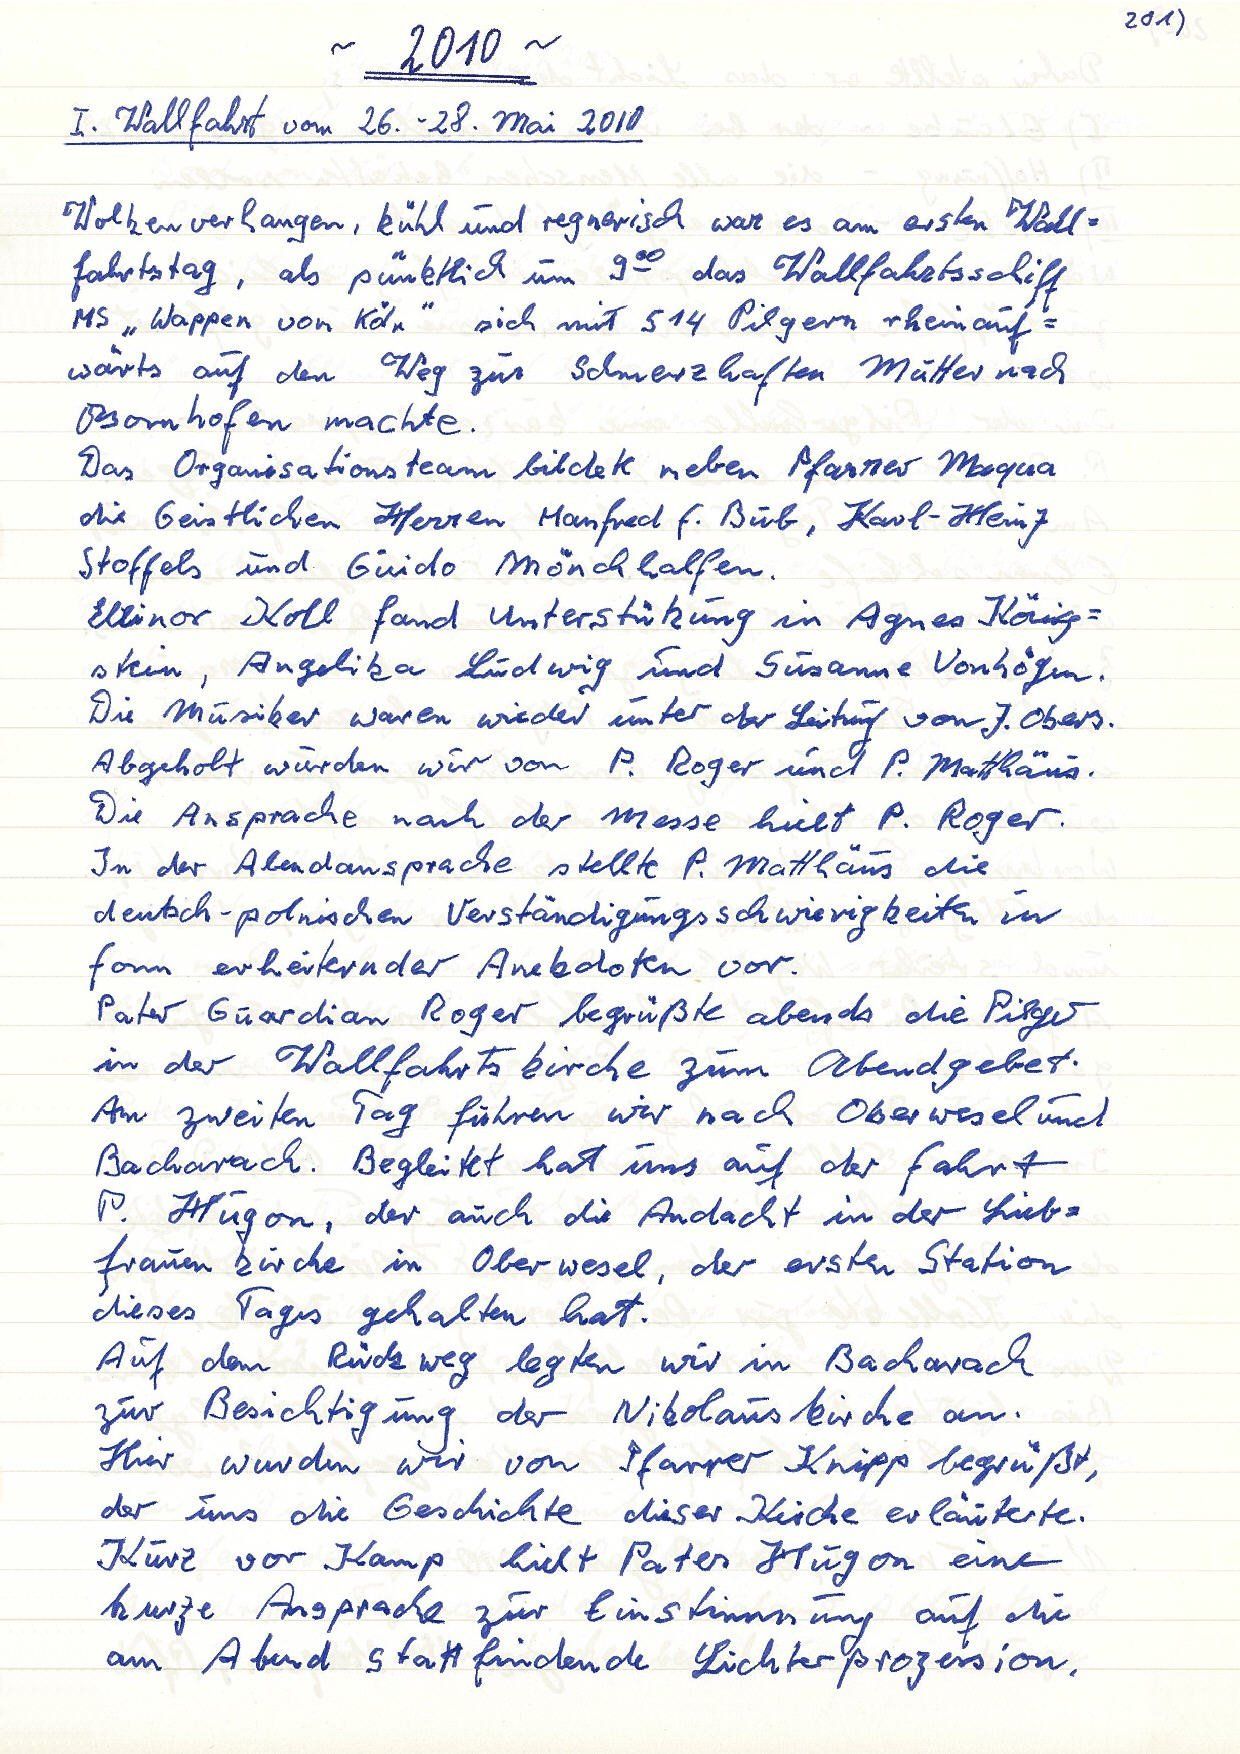 201)
~ 2010 ~
I. Wallfahrt vom 26.-28. Mai 2010
Wolkenverhangen, kühl und regnerisch war es am ersten Wall=
fahrtstag, als pünktlich um 9⁰⁰ das Wallfahrtsschiff
MS „Wappen von Köln" sich mit 514 Pilgern rheinauf=
wärts auf den Weg zur Schmerzhaften Mutter nach
Bornhofen machte.
Das Organisationsteam bildete neben Pfarrer Meqwa
die Geistlichen Herren Manfred F. Bub, Karl-Heinz
Stoffels und Guido Mönchhalfen.
Ellinor Koll fand Unterstützung in Agnes König=
stein, Angelika Ludwig und Susanne Vonhögen.
Die Musiker waren wieder unter der Leitung von J. Obers.
Abgeholt wurden wir von P. Roger und P. Matthäus.
Die Ansprache nach der Messe hielt P. Roger.
In der Abendansprache stellte P. Matthäus die
deutsch-polnischen Verständigungsschwierigkeiten in
Form erheiternder Anekdoten vor.
Pater Guardian Roger begrüßte abends die Pilger
in der Wallfahrtskirche zum Abendgebet.
Am zweiten Tag fuhren wir nach Oberwesel und
Bacharach. Begleitet hat uns auf der Fahrt
P. Hugon, der auch die Andacht in der Lieb=
frauenkirche in Oberwesel, der ersten Station
dieses Tages gehalten hat.
Auf dem Rückweg legten wir in Bacharach
zur Besichtigung der Nikolauskirche an.
Hier wurden wir von Pfarrer Knipp begrüßt,
der uns die Geschichte dieser Kirche erläuterte.
Kurz vor Kamp hielt Pater Hugon eine
kurze Ansprache zur Einstimmung auf die
am Abend stattfindende Lichterprozession.